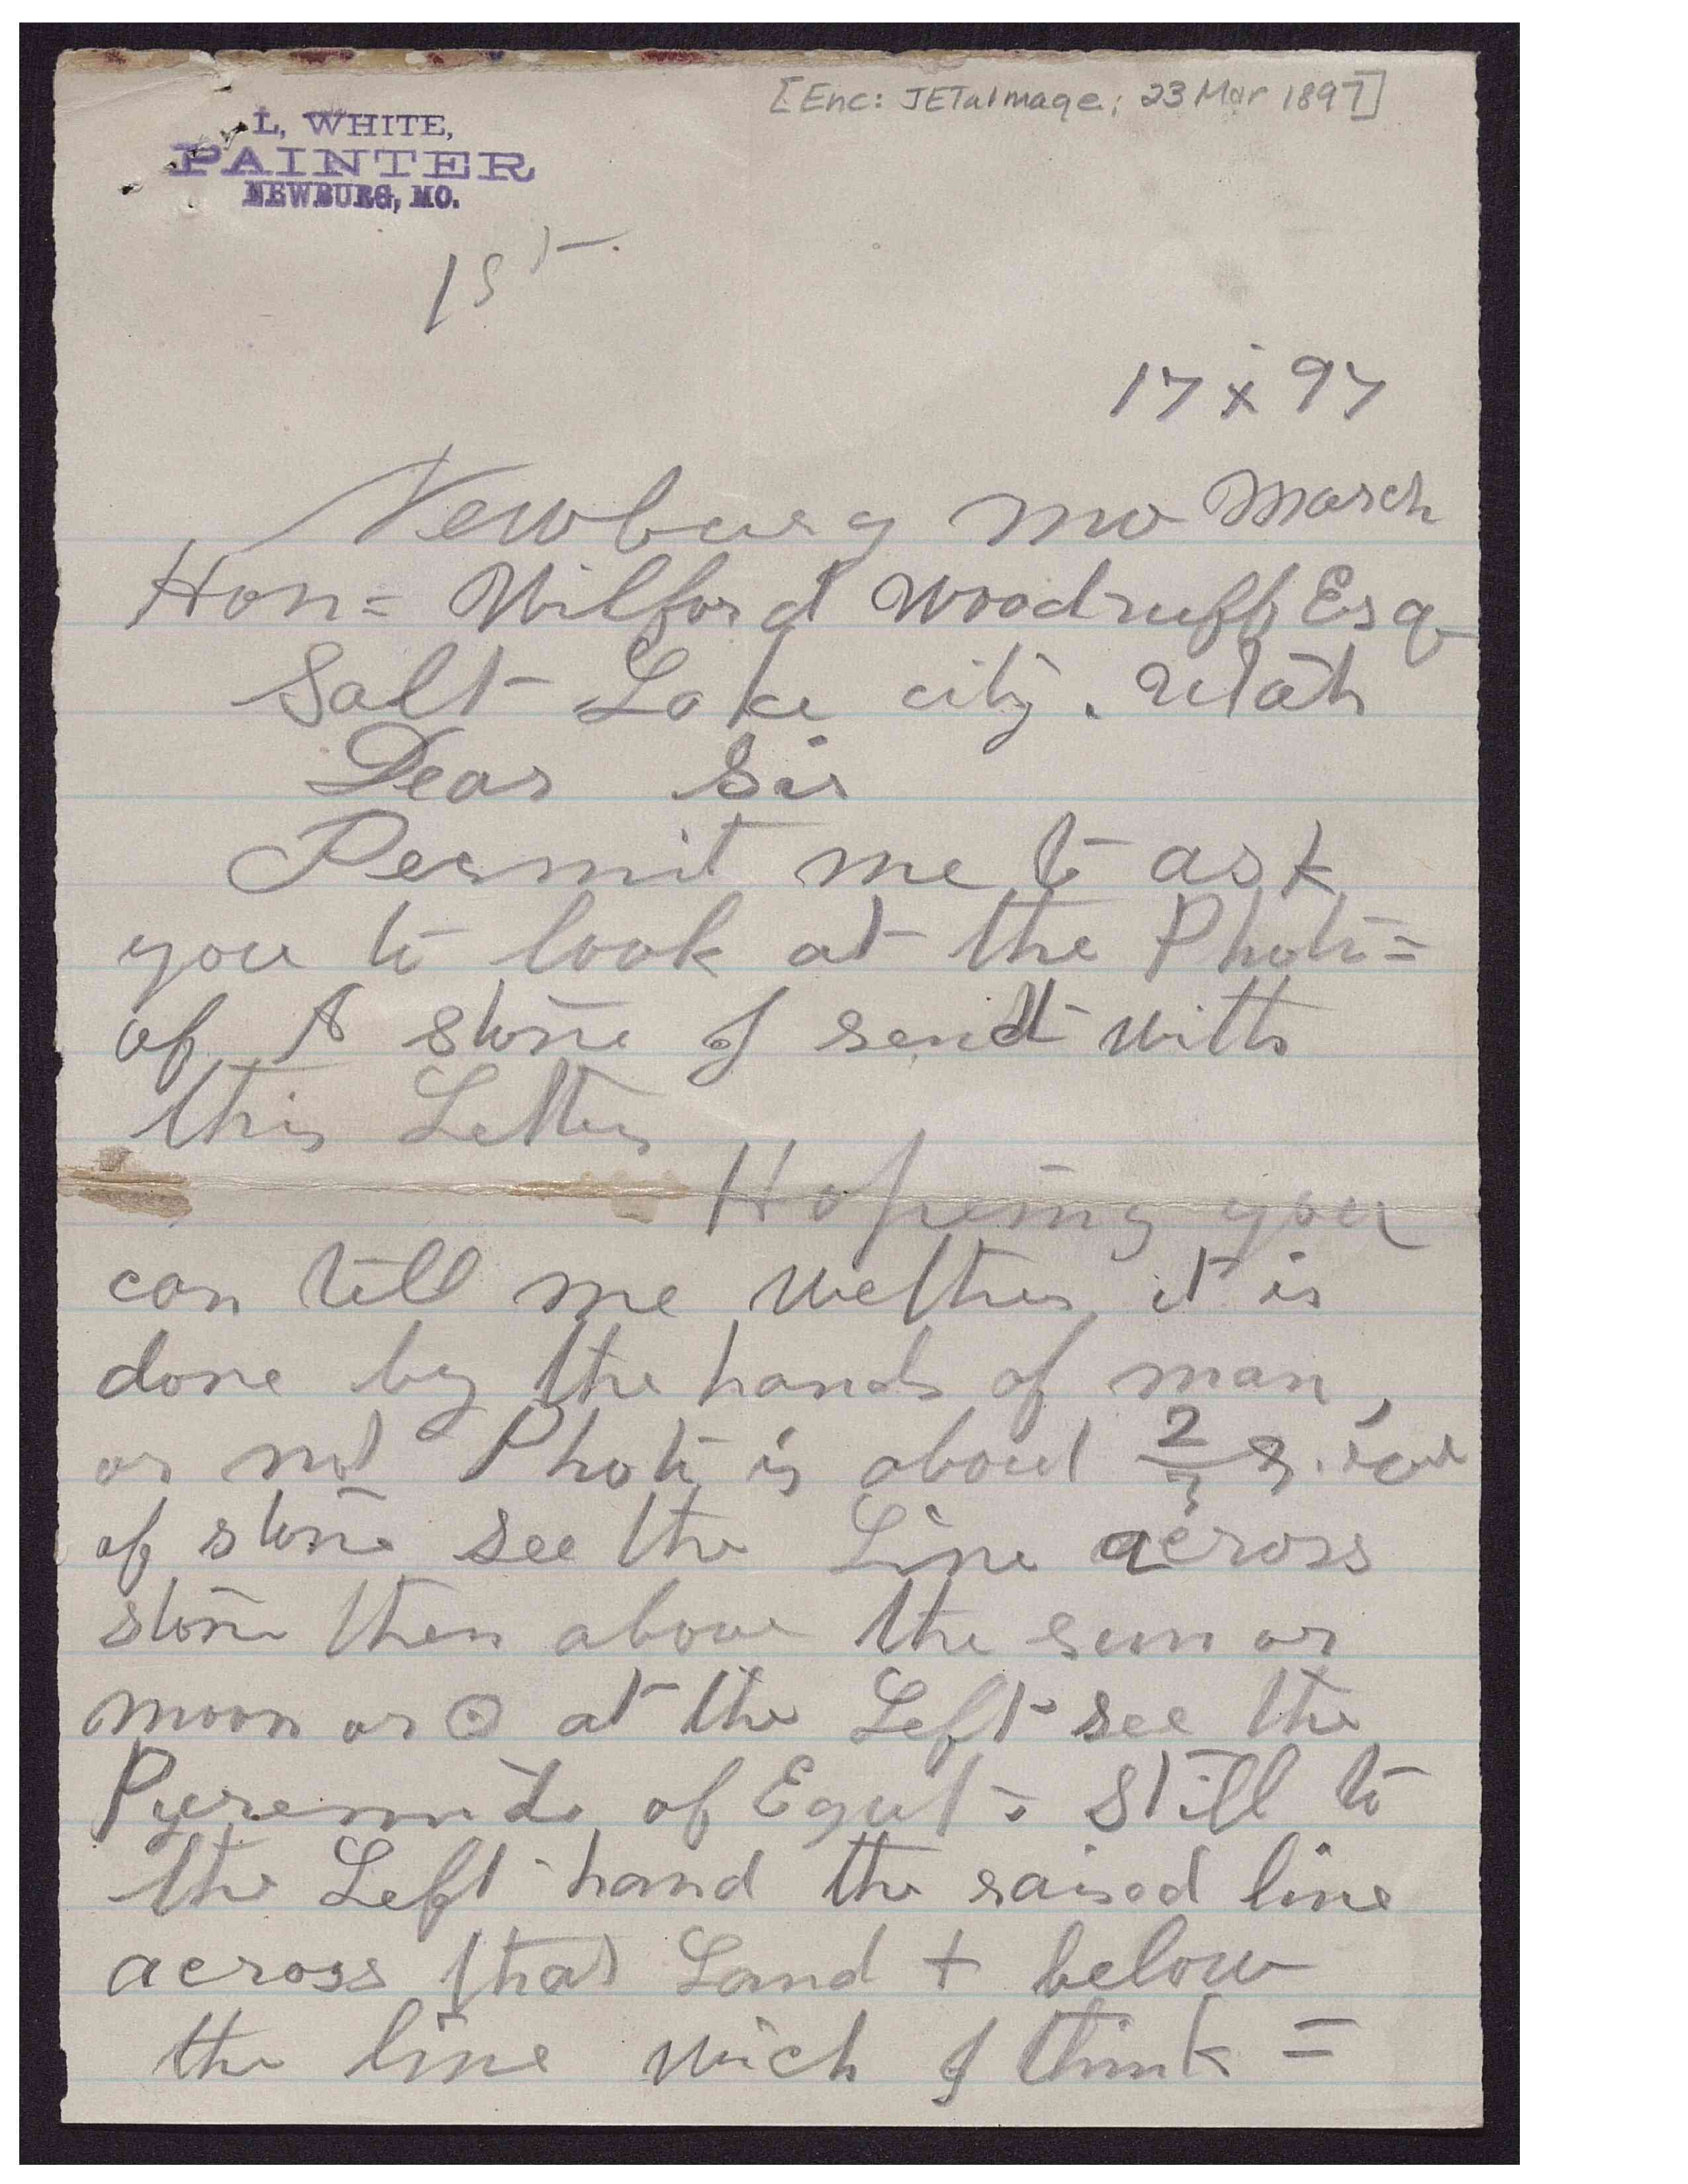 [Enc: JETalmage; 23 Mar 1897]
L. WHITE,
PAINTER
NEWBURG, MO.
1st.
17 x 97
Newburg Mo March
Hon= Wilford Woodruff Esq
Salt Lake city. Utah
Dear Sir
Permit me to ask
you to look at the Photo=
of A stone I send with
this Letter
Hopeing you
can tell me wether it is
done by the hands of man,
or not Photo is about 2/3
of stone see the Line across
stone then above the sun or
moon or ⊙ at the Left see the
Pyremids of Egypt = Still to
the Left hand the raised line
across that Land + below
the line wich I think =